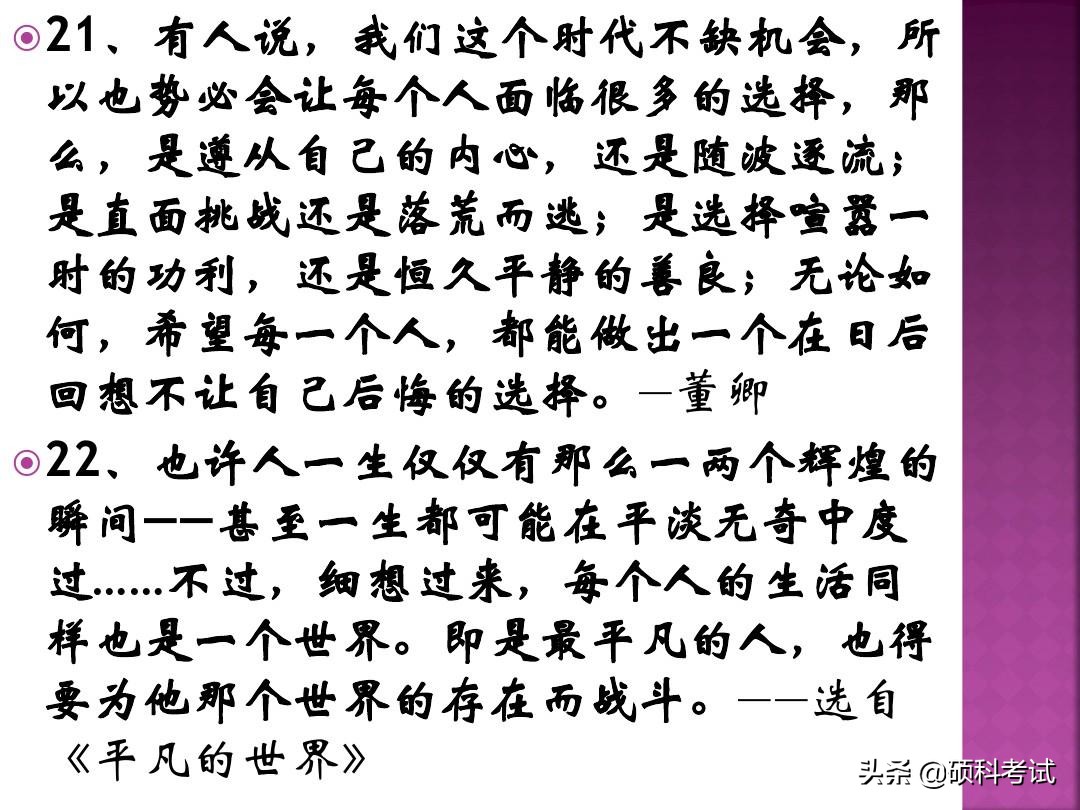 21、有人说，我们这个时代不缺机会，所
以也势必会让每个人面临很多的选择，那
么，是遵从自己的内心，还是随波逐流；
是直面挑战还是落荒而逃；是选择喧嚣一
时的功利，还是恒久平静的善良；无论如
何，希望每一个人，都能做出一个在日后
回想不让自己后悔的选择。—董卿
22、也许人一生仅仅有那么一两个辉煌的
瞬间——甚至一生都可能在平淡无奇中度
过……不过，细想过来，每个人的生活同
样也是一个世界。即是最平凡的人，也得
要为他那个世界的存在而战斗。——选自
《平凡的世界》
头条 @硕科考试